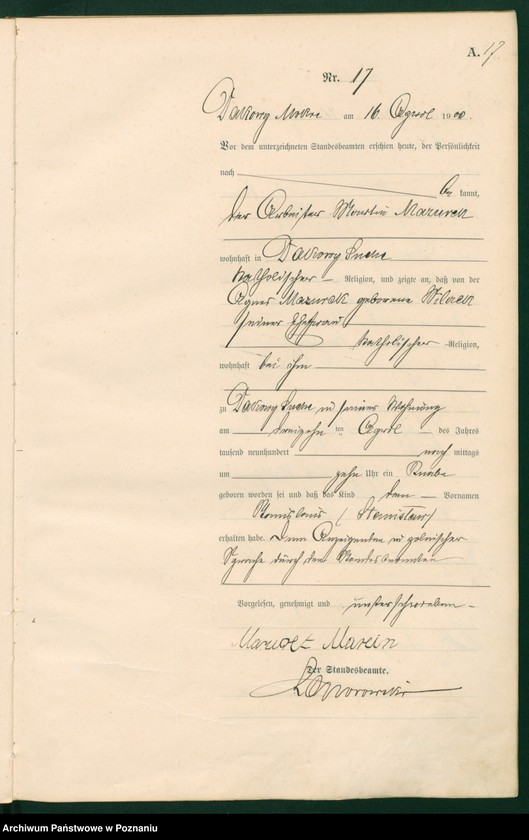 A. 17
Nr. 17
Dakowy Mokre am 16. April 1900.
Vor dem unterzeichneten Standesbeamten erschien heute, der Persönlichkeit
nach be kannt,
der Arbeiter Martin Mazurek
wohnhaft in Dakowy Suche
katholischer Religion, und zeigte an, daß von der
Agnes Mazurek geborene
seiner Ehefrau
katholischer Religion,
wohnhaft bei ihm
zu Dakowy Suche in seiner Wohnung
am ten April des Jahres
tausend neunhundert nach mittags
um zehn Uhr ein Knabe
geboren worden sei und daß das Kind den Vornamen
Stanislaus (Stanisław)
erhalten habe. Dem Anzeigenden in polnischer
Sprache durch den Standesbeamten
Vorgelesen, genehmigt und unterschrieben
Mazurek Marcin
Der Standesbeamte.
Archiwum Państwowe w Poznaniu